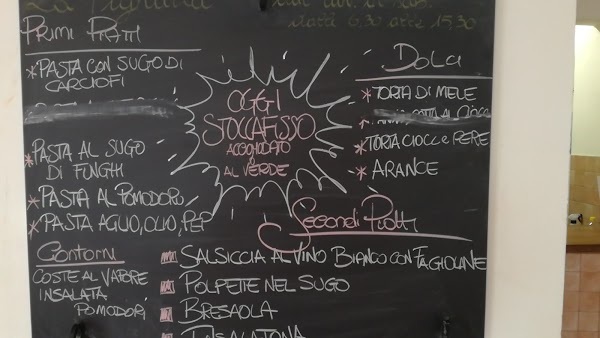 dalle 6.30 alle 15.30
PRIMI PIATTI
*PASTA CON SUGO DI
CARCIOFI
*PASTA AL SUGO
DI FUNGHI
*PASTA AL POMODORO
*PASTA AGLIO, OLIO, PEP
Contorni
COSTE AL VAPORE
INSALATA
POMODORI
OGGI
STOCCAFISSO
ACCOMODATO
O
AL VERDE
DOLCI
*TORTA DI MELE
*TORTA CIOCC e PERE
*ARANCE
Secondi Piatti
SALSICCIA AL VINO BIANCO CON FAGIOLANE
POLPETE NEL SUGO
BRESAOLA
INSALATONA